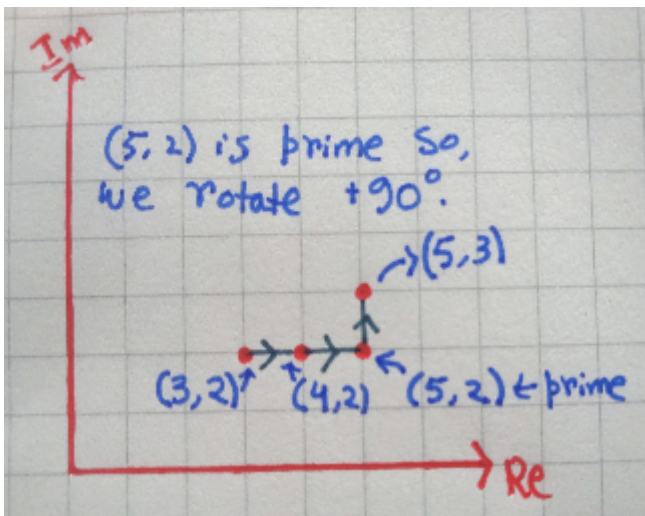 Im
(5,2) is prime so,
we rotate +90°.
(5,3)
(3,2) (4,2) (5,2) ← prime
Re